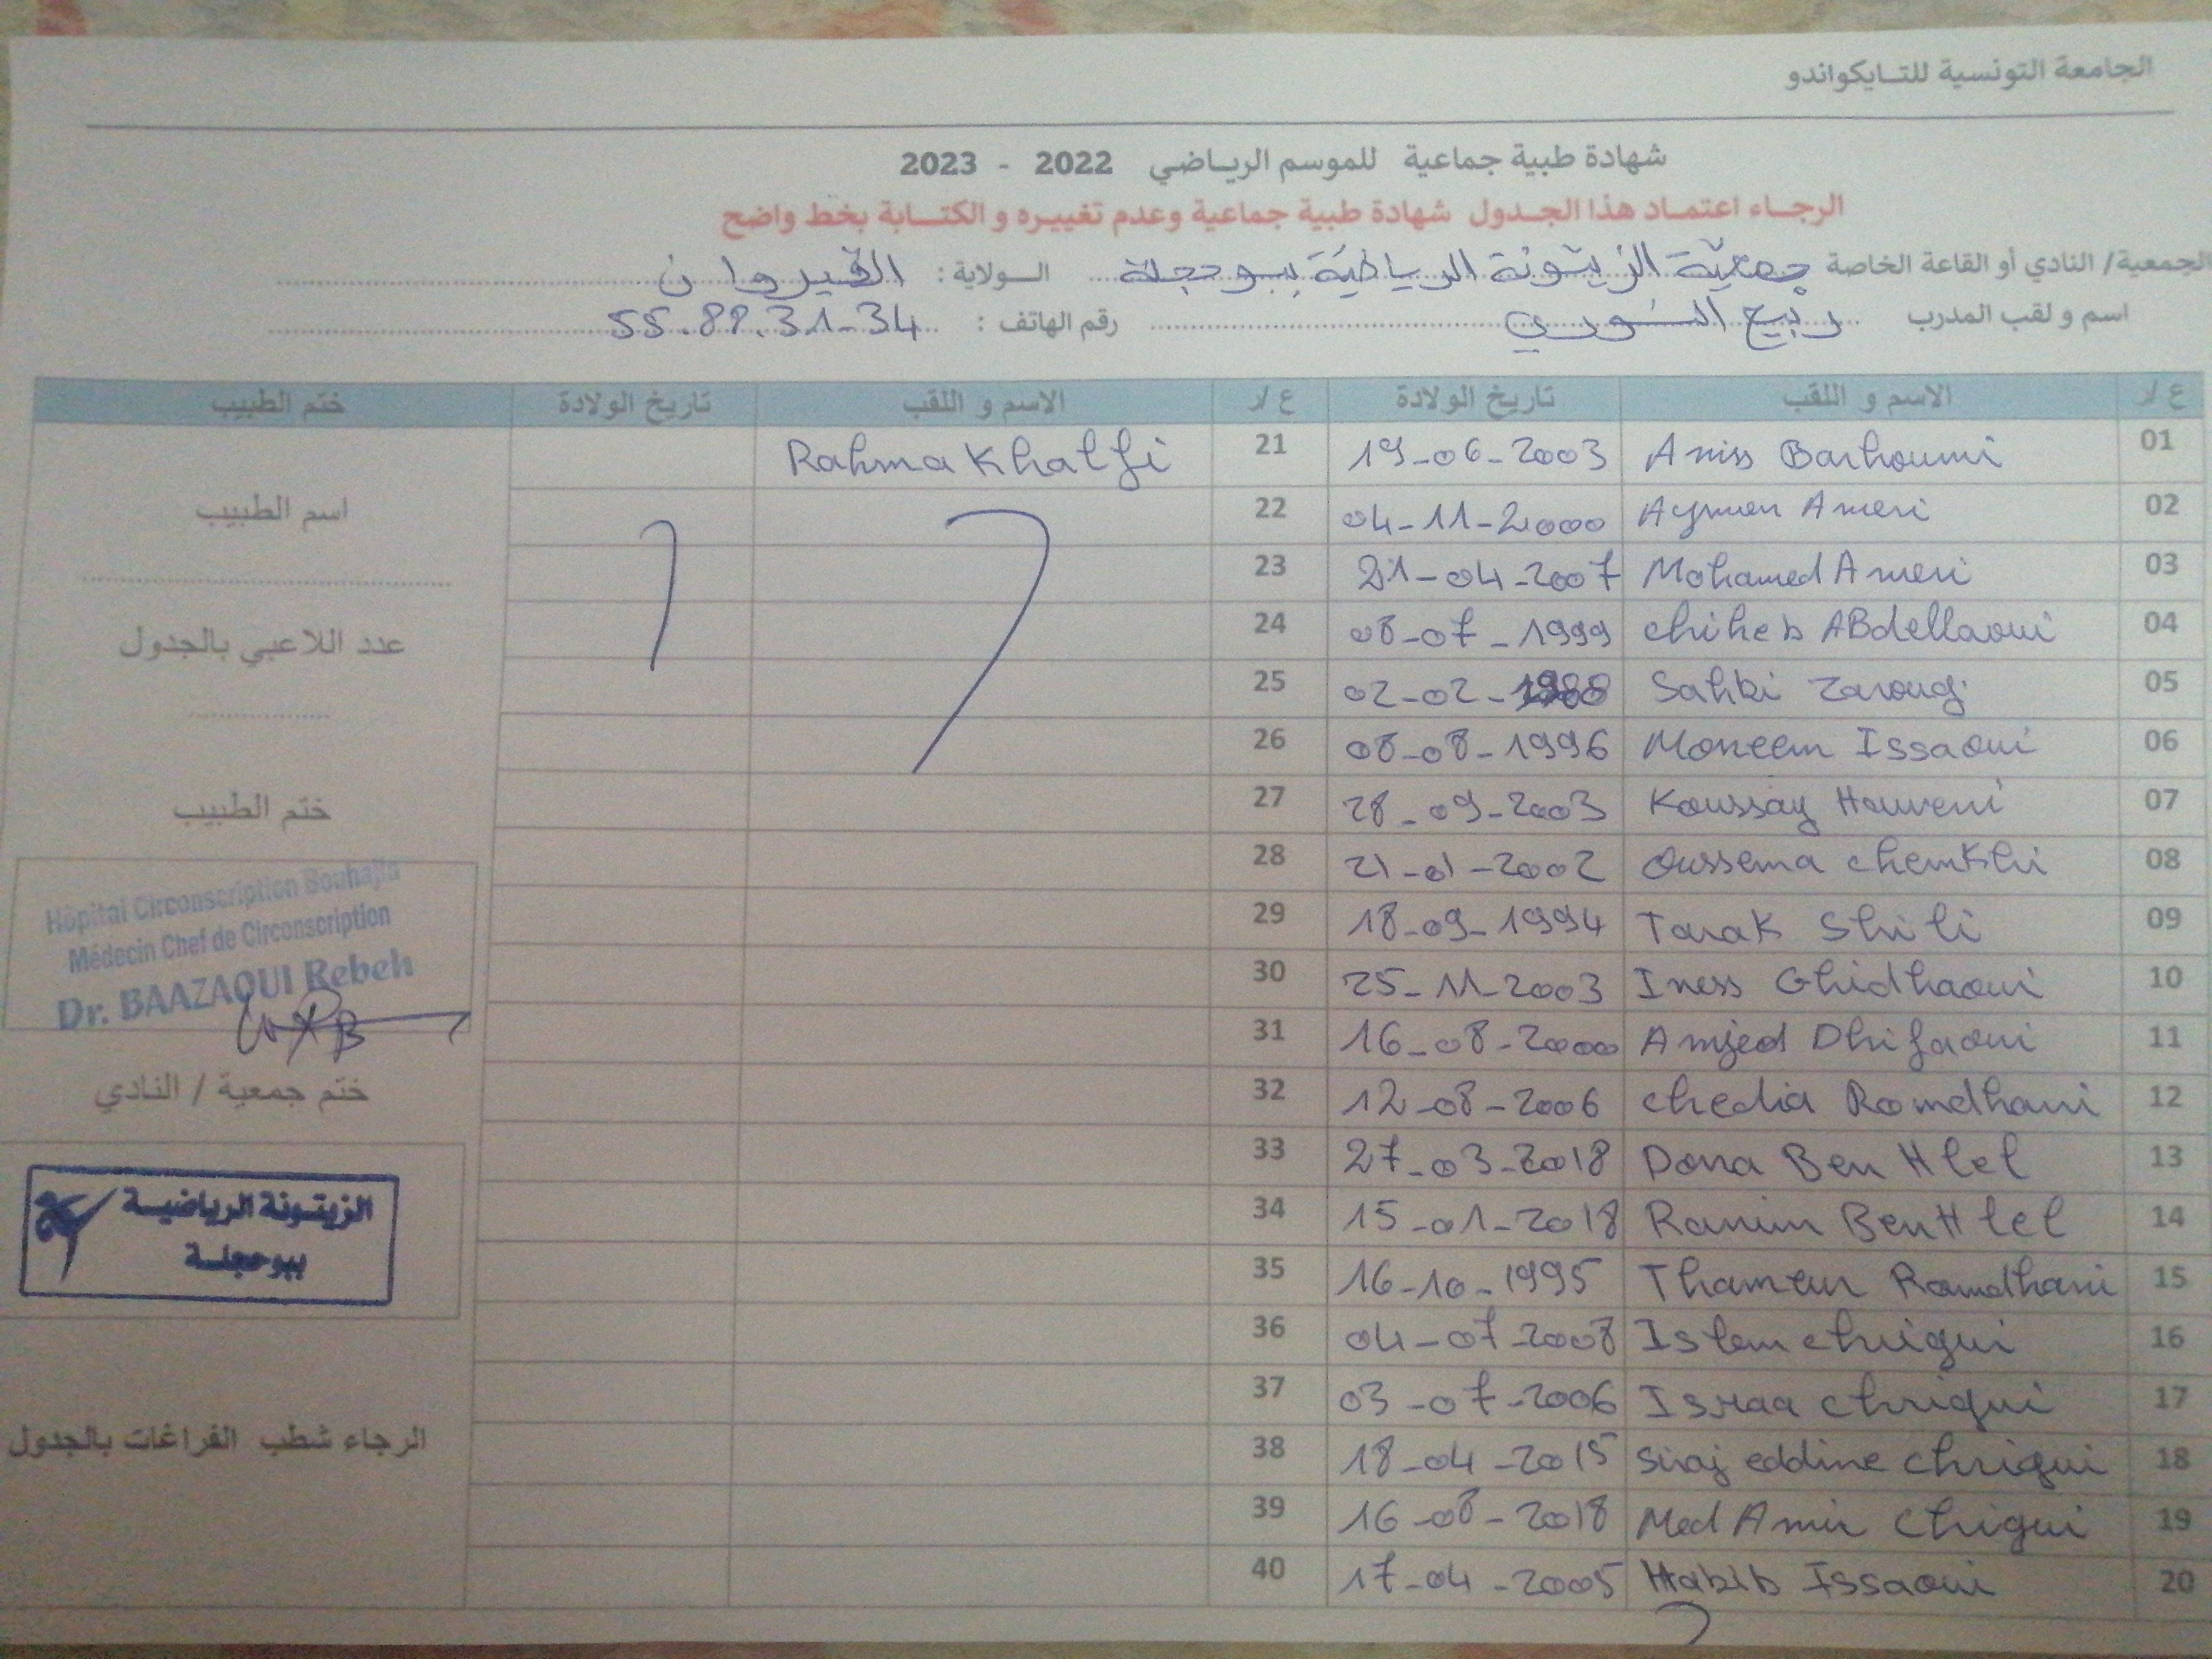 الجامعة التونسية للتايكواندو
شهادة طبية جماعية للموسم الرياضي 2022 - 2023
الرجاء اعتماد هذا الجدول شهادة طبية جماعية وعدم تغييره و الكتابة بخط واضح
الجمعية/ النادي أو القاعة الخاصة جمعية الزيتونة الرياضية ببوحجلة الولاية : القيروان
اسم و لقب المدرب ربيع النوري رقم الهاتف : 55.88.31-34
ع /ر الاسم و اللقب تاريخ الولادة ع /ر الاسم و اللقب تاريخ الولادة ختم الطبيب
01 Aniss Barhoumi 19-06-2003 21 Rahma Khalfi
02 Aymen Ameri 04-11-2000 22
اسم الطبيب
03 Mohamed Ameri 21-04-2007 23
04 chiheb ABdellaoui 08-07-1999 24
عدد اللاعبي بالجدول
05 Sahbi Zaroug 02-02-1988 25
06 Moneem Issaoui 08-08-1996 26
07 Koussay Houveni 28-09-2003 27
ختم الطبيب
08 Oussema chemkhi 21-01-2002 28
Hôpital Circonscription Bouhajla
09 Tarak Shili 18-09-1994 29
Médecin Chef de Circonscription
10 Iness Ghidhaoui 25-11-2003 30
Dr. BAAZAOUI Rebeh
11 Amjed Dhifaoui 16-08-2000 31
12 chedia Romdhani 12-08-2006 32
ختم جمعية / النادي
13 Dona Ben Hlel 27-03-2018 33
14 Ranim Ben Hlel 15-01-2018 34
الزيتونة الرياضية
ببوحجلة
15 Thameur Romdhani 16-10-1995 35
16 Islem chrigui 04-07-2008 36
17 Israa chrigui 03-07-2006 37
18 Siraj eddine chrigui 18-04-2015 38
الرجاء شطب الفراغات بالجدول
19 Med Amir Chrigui 16-08-2018 39
20 Habib Issaoui 17-04-2005 40